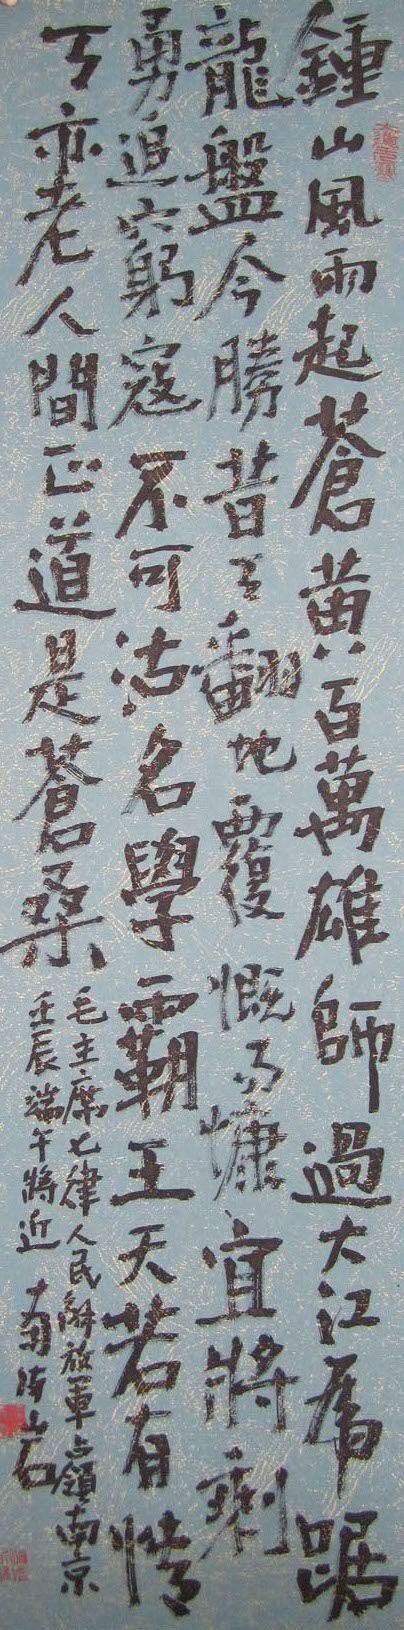 鍾山風雨起蒼黃百萬雄師過大江虎踞
龍盤今勝昔天翻地覆慨而慷宜將剩
勇追窮寇不可沽名學霸王天若有情
天亦老人間正道是蒼桑
毛主席七律人民解放軍占領南京
壬辰端午將近 山石